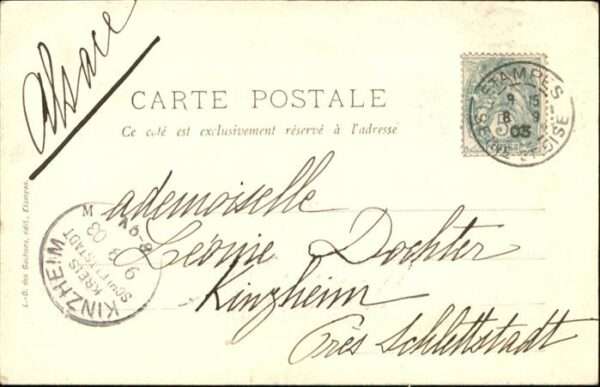 Alsace
CARTE POSTALE
Ce coté est exclusivement réservé à l'adresse
ETAMPES
9 15
8 9
03
SEINE ET OISE
5
Mademoiselle
Léonie Dochter
Kinzheim
Près Schlettstadt
KINZHEIM
KREIS
SCHLETTSTADT
9 03
8-9V
L.-D. des Gachons, édit., Etampes